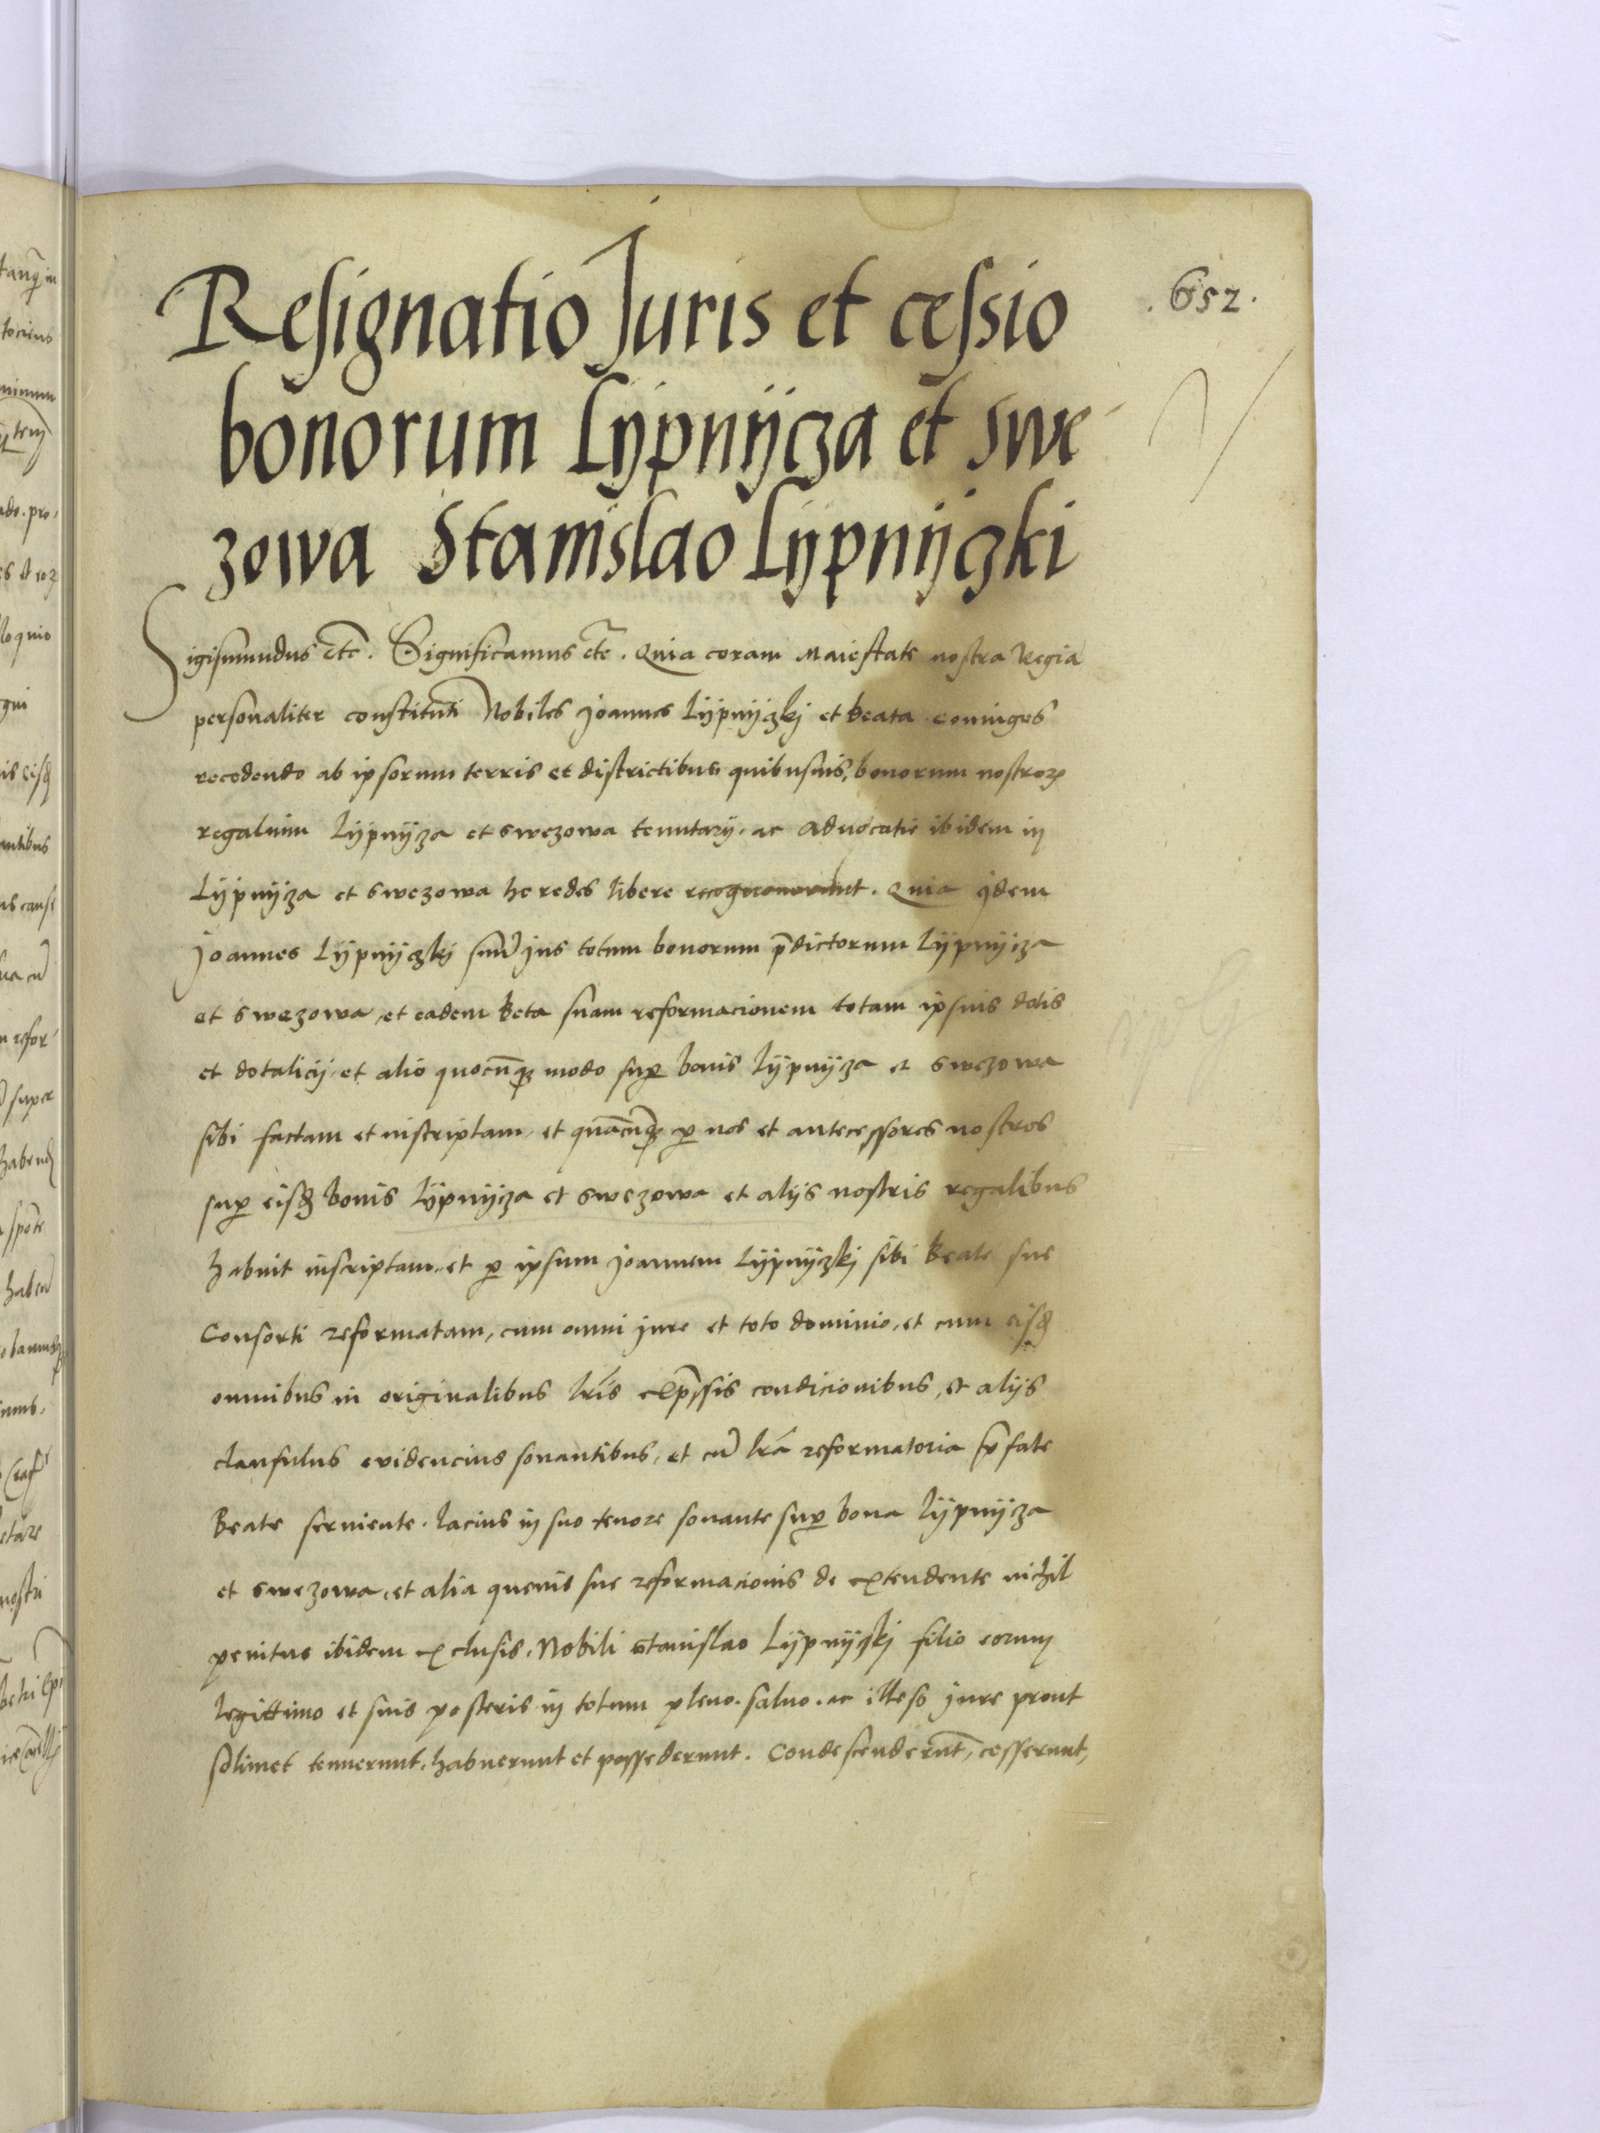 .652.
Resignatio Juris et cessio
bonorum Lypnycza et Swe
zowa Stanislao Lypnyczki
Sigismundus etc. Significamus etc. Quia coram Maiestate nostra Regia
personaliter constituti Nobiles Joannes Lypnyczkj et Beata coniuges
recedendo ab ipsorum terris et districtibus quibusuis, bonorum nostroꝝ
regalium Lypnycza et Swezowa tenutarij, ac aduocatie ibidem in
Lypnycza et Swezowa heredes libere recognouerunt. Quia idem
Joannes Lypnyczkj suũ jus totum bonorum p̄dictorum Lypnycza
et Swezowa, et eadem Beta suam reformacionem totam ipsius dotis
et dotalicij, et alio quocūqȝ modo suꝑ bonis Lypnycza et Swezowa
sibi factam et inscriptam, et quācūqȝ ꝑ nos et antecessores nostros
suꝑ eisdē bonis Lypnycza et Swezowa et alijs nostris regalibus
habuit inscriptam, et ꝑ ipsum Joannem Lypnyczkj sibi Beate sue
Consorti reformatam, cum omni jure et toto dominio, et cum eisdē
omnibus in originalibus lr̄is exp̄ssis condicionibus, et alijs
clausulus euidencius sonantibus, et cū lr̄a reformatoria p̄fate
Beate seruiente. lacius in suo tenore sonante suꝑ bona Lypnycza
et Swezowa, et alia queuis sue reformacionis de extendente nichil
penitus ibidem exclusis. Nobili Stanislao Lypnyczkj filio eorum
legittimo et suis posteris in totum pleno. saluo. ac illeso jure prout
solimet tenuerunt, habuerunt et possederunt. Condescenderūt, cesserunt,